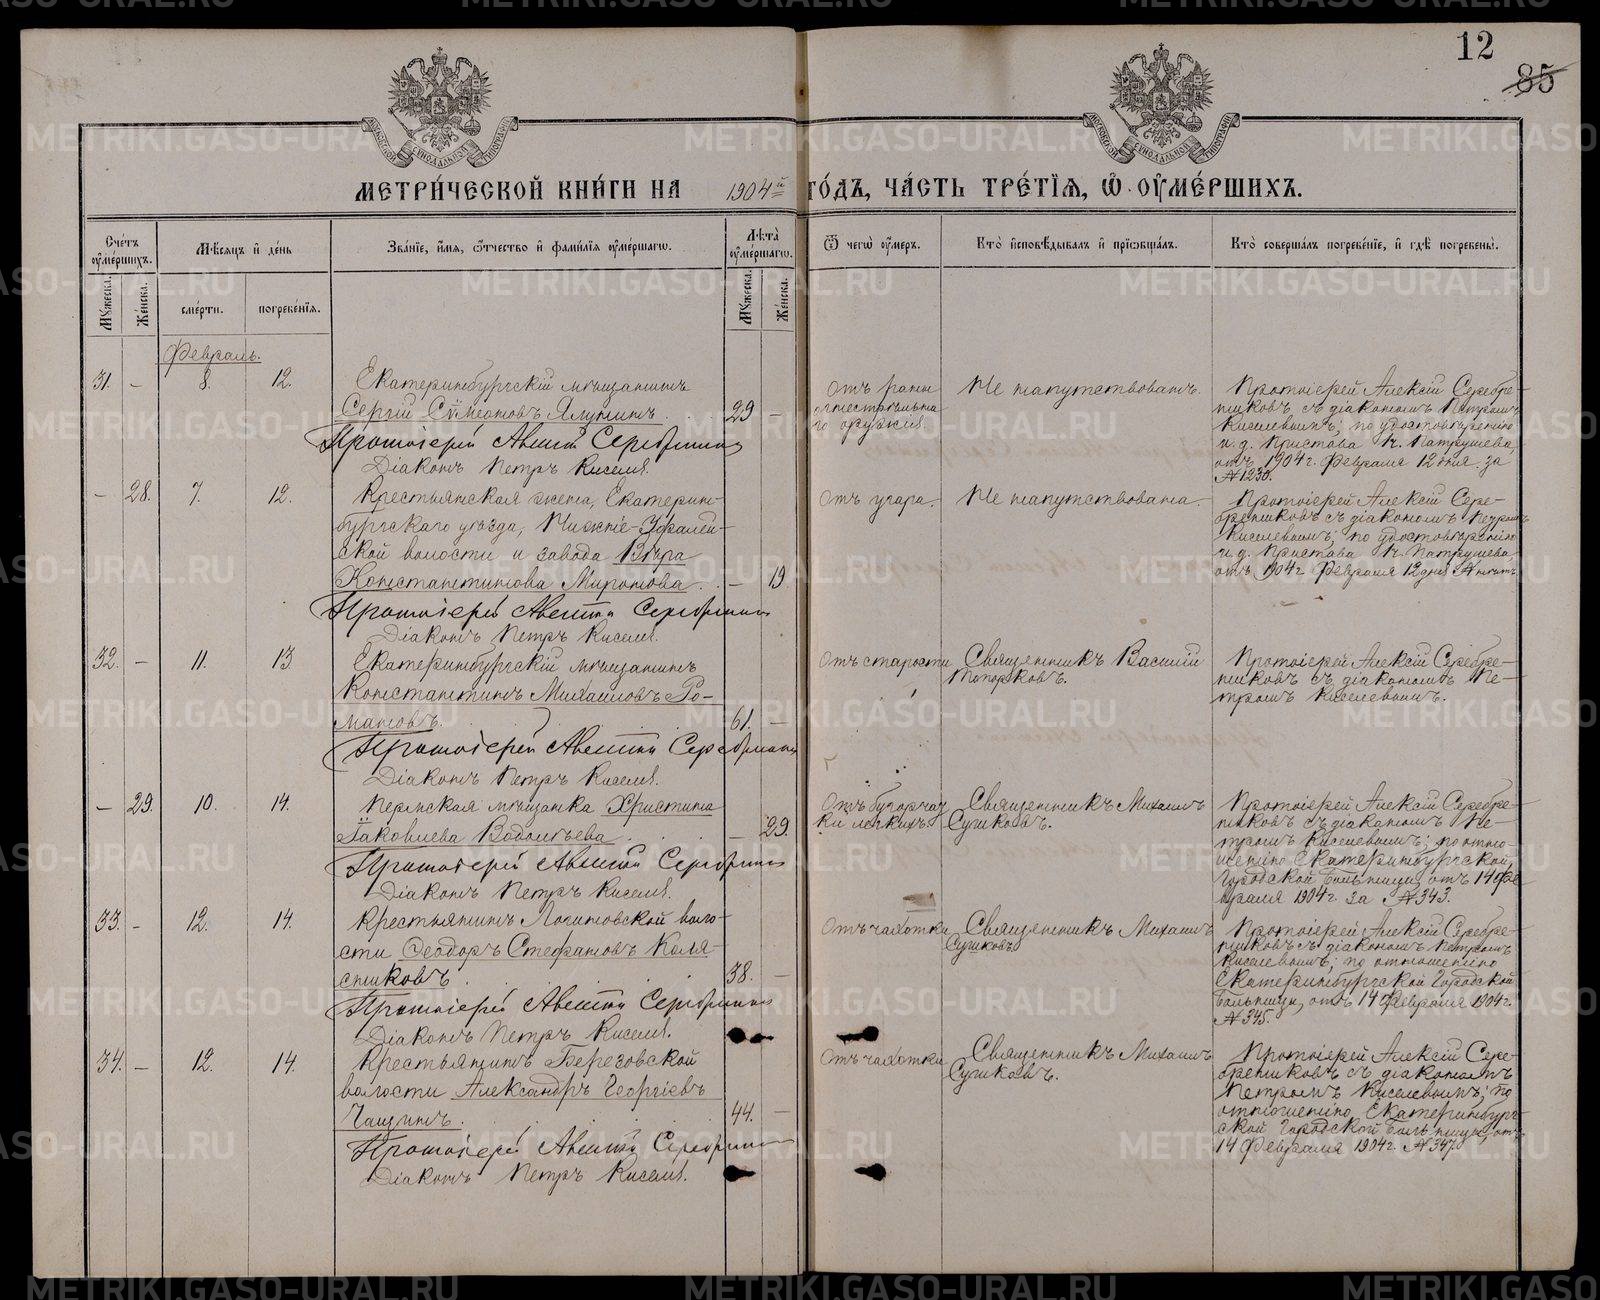 12
85
МЕТРИ́ЧЕСКОЙ КНИ́ГИ НА 1904й ГО́ДЪ, ЧА́СТЬ ТРЕ́ТІѦ, Ѽ ОУ҆МЕ́РШИХЪ.
Сче́тъ оу҆ме́ршихъ.
Мѣ́сяцъ и де́нь
Зва́ніе, и҆мя, ѻтчество и фами́лія оу҆ме́ршагѡ.
Лѣ́та оу҆ме́ршагѡ.
Ѿ чегѡ̀ оу҆ме́ръ.
Кто̀ и҆сповѣ́дывалъ и прїѡбща́лъ.
Кто̀ соверша́лъ погребе́нїе, и гдѣ̀ погребены̀.
Мꙋ́жеска.
Же́нска.
сме́рти.
погребе́нїя.
Мꙋ́жеска.
Же́нска.
Февраль.
31. – 8. 12.
Екатеринбургскій мѣщанинъ
Сергій Сѵмеоновъ Ялунинъ. 29 –
Протоіерей Алексій Серебренниковъ
Діаконъ Петръ Киселевъ.
Отъ раны
огнестрѣльна
го оружія.
Не напутствованъ.
Протоіерей Алексій Серебре-
нниковъ съ діакономъ Петромъ
Киселевымъ; по удостовѣренію
и. д. Пристава К. Патрушева,
отъ 1904 г. Февраля 12 дня за
№ 1230.
– 28. 7. 12.
Крестьянская жена, Екатерин-
бургскаго уѣзда, Нижне-Уфалей-
ской волости и завода Вѣра
Константинова Миронова. – 19.
Протоіерей Алексій Серебренниковъ
Діаконъ Петръ Киселевъ.
Отъ угара.
Не напутствована.
Протоіерей Алексій Сере-
бренниковъ съ діакономъ Петромъ
Киселевымъ, по удостовѣренію
и. д. Пристава К. Патрушева
отъ 1904 г. Февраля 12 дня №
32. – 11. 13.
Екатеринбургскій мѣщанинъ
Константинъ Михаиловъ Ро-
мановъ. 61. –
Протоіерей Алексій Серебренниковъ
Діаконъ Петръ Киселевъ.
Отъ старости
Священникъ Василій
Топорковъ.
Протоіерей Алексій Серебре-
нниковъ съ діакономъ Пе-
тромъ Киселевымъ.
– 29. 10. 14.
Пермская мѣщанка Христина
Іаковлева – 29.
Протоіерей Алексій Серебренниковъ
Діаконъ Петръ Киселевъ.
Отъ бугорчат
ки легкихъ.
Священникъ Михаилъ
Сушковъ.
Протоіерей Алексій Серебре-
нниковъ съ діакономъ Пе-
тромъ Киселевымъ; по отно-
шенію Екатеринбургской
Городской больницы, отъ 14 Фе
враля 1904 г. за № 343.
33. – 12. 14.
Крестьянинъ Логиновской воло-
сти Ѳеодоръ Стефановъ Коля-
сниковъ. 38. –
Протоіерей Алексій Серебренниковъ
Діаконъ Петръ Киселевъ.
Отъ чахотки
Священникъ Михаилъ
Сушковъ.
Протоіерей Алексій Серебре-
нниковъ съ діакономъ Петромъ
Киселевымъ; по отношенію
Екатеринбургской Городской
больницы, отъ 14 Февраля 1904 г.
№ 345.
34. – 12. 14.
Крестьянинъ Березовской
волости Александръ Георгіевъ
Чащинъ. 44. –
Протоіерей Алексій Серебренниковъ
Діаконъ Петръ Киселевъ.
Отъ чахотки
Священникъ Михаилъ
Сушковъ.
Протоіерей Алексій Сере-
бренниковъ съ діакономъ
Петромъ Киселевымъ; по
отношенію Екатеринбург-
ской Городской больницы, отъ
14 Февраля 1904 г. № 347.
METRIKI.GASO-URAL.RU